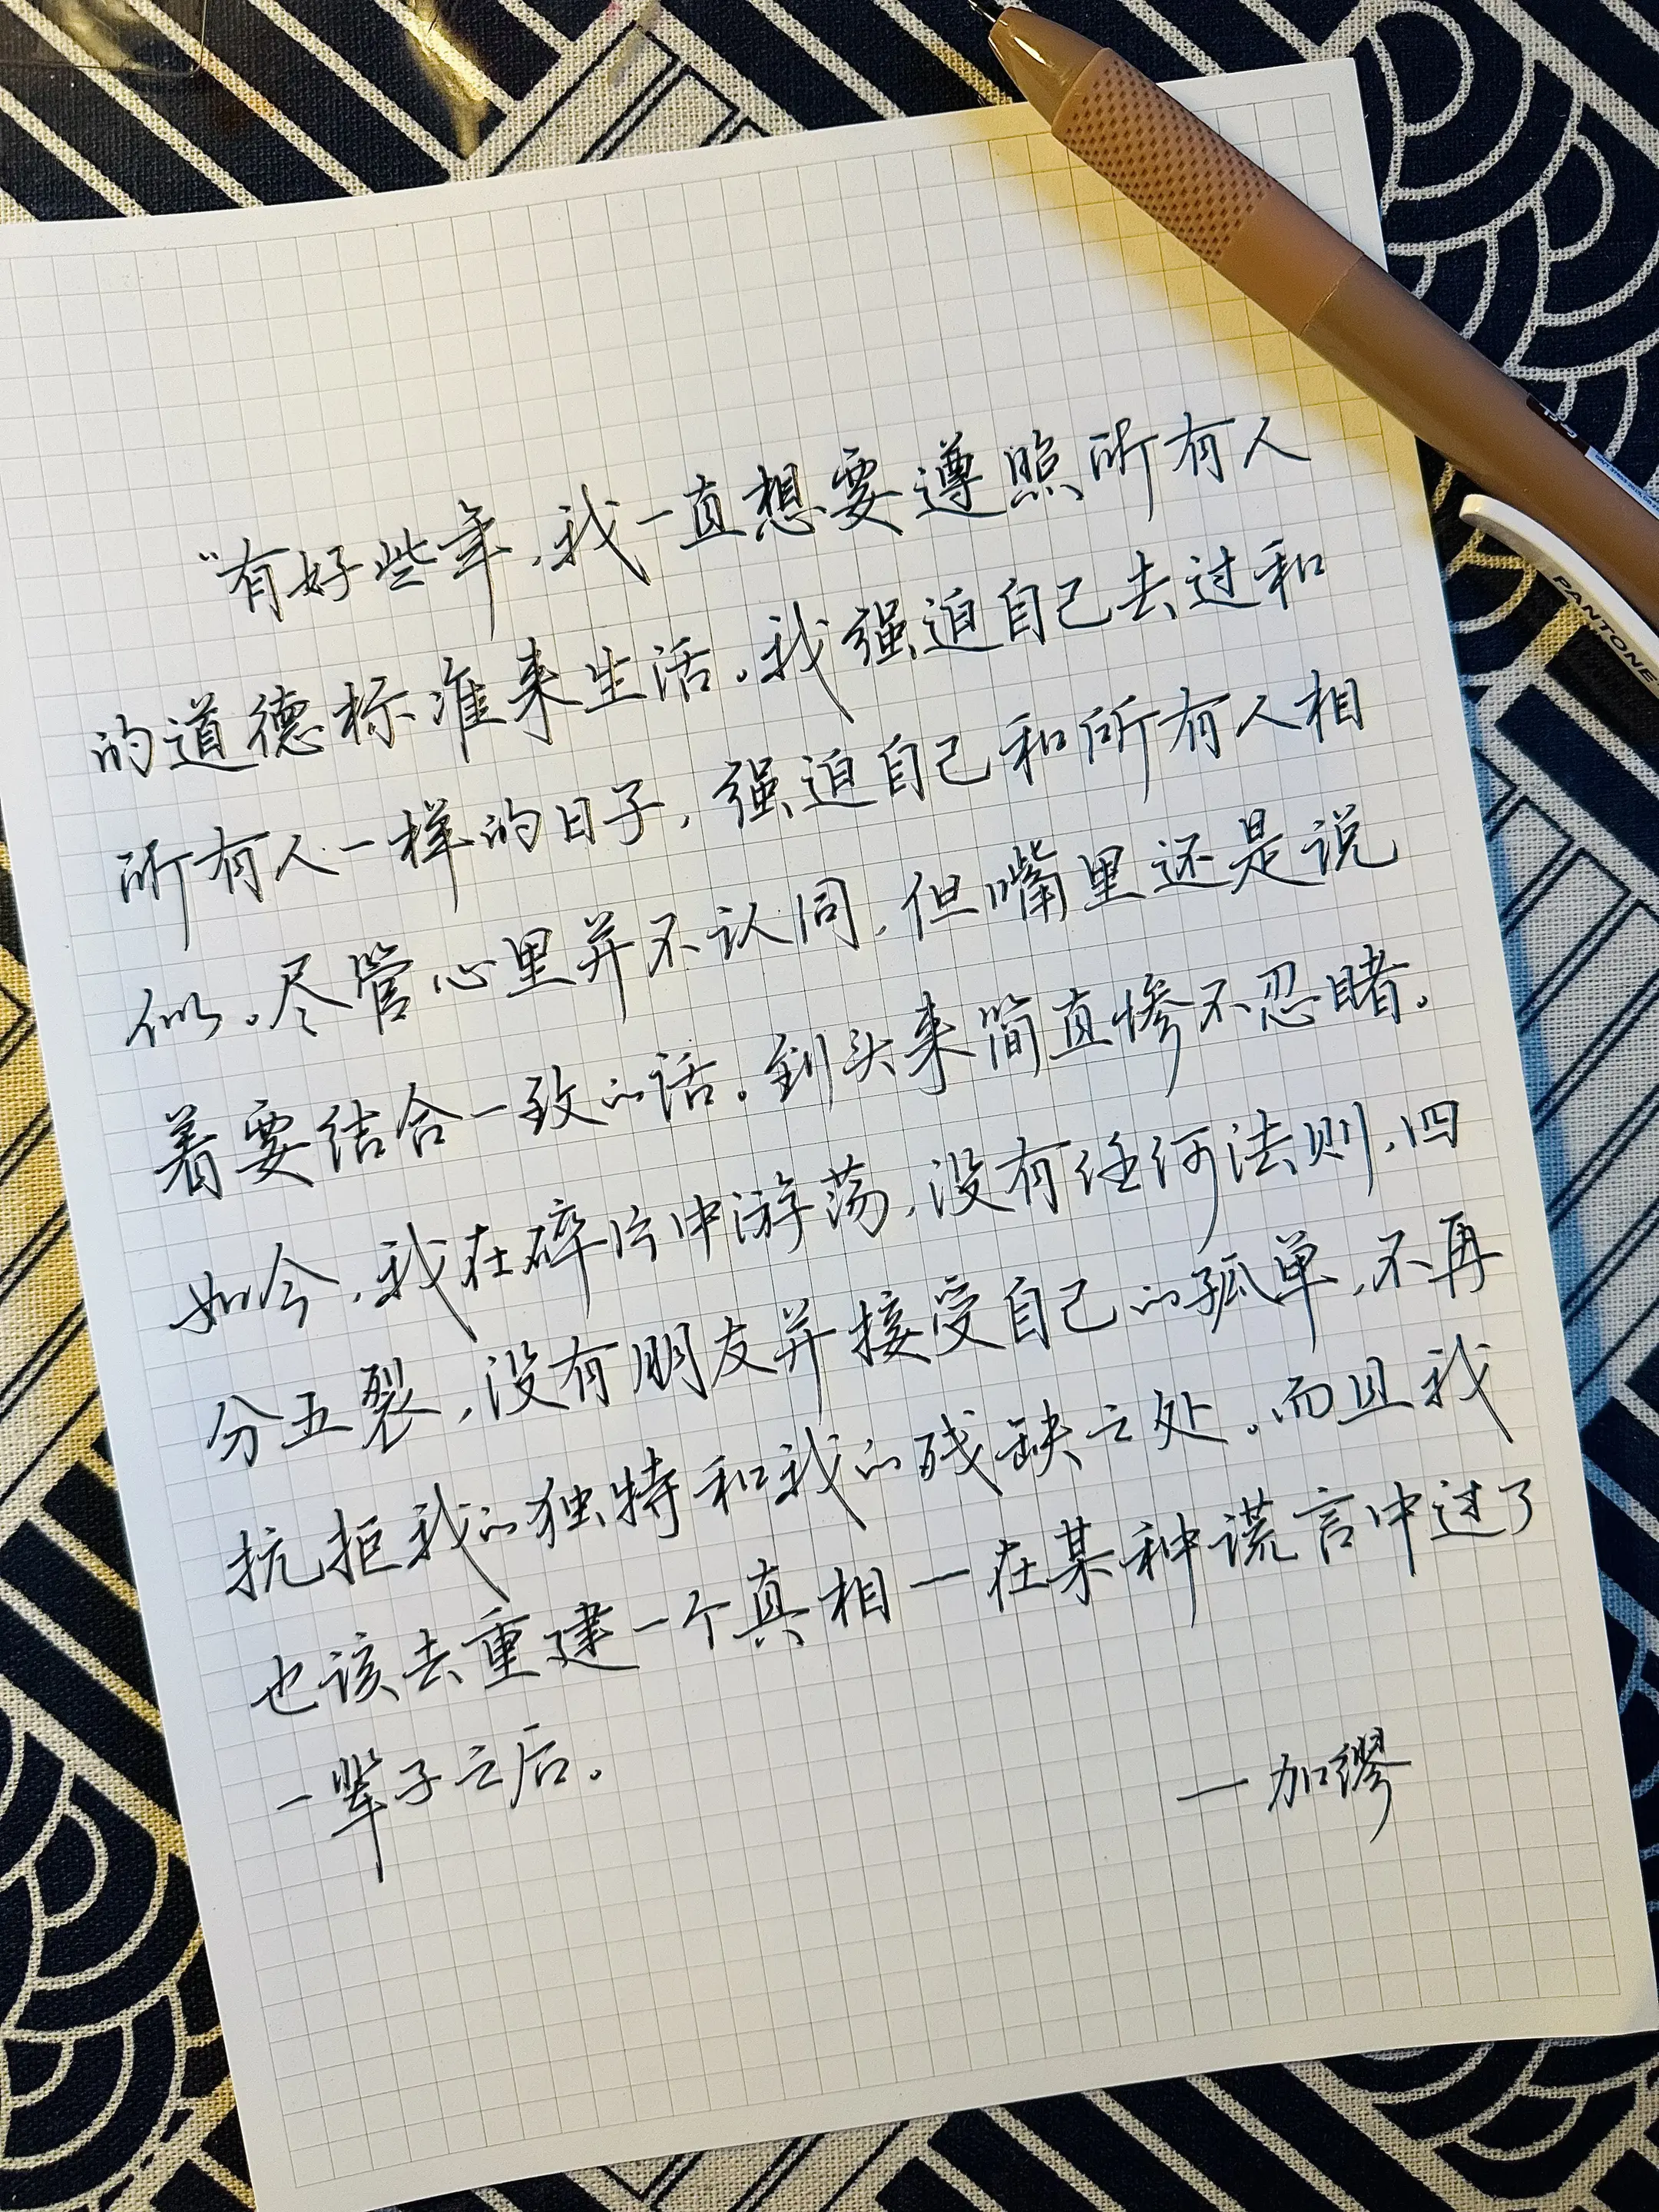 “有好些年,我一直想要遵照所有人
的道德标准来生活。我强迫自己去过和
所有人一样的日子,强迫自己和所有人相
似。尽管心里并不认同,但嘴里还是说
着要结合一致的话。到头来简直惨不忍睹。
如今,我在碎片中游荡,没有任何法则,四
分五裂,没有朋友并接受自己的孤单,不再
抗拒我的独特和我的残缺之处。而且我
也该去重建一个真相一在某种谎言中过了
一辈子之后。
—加缪
PANTONE